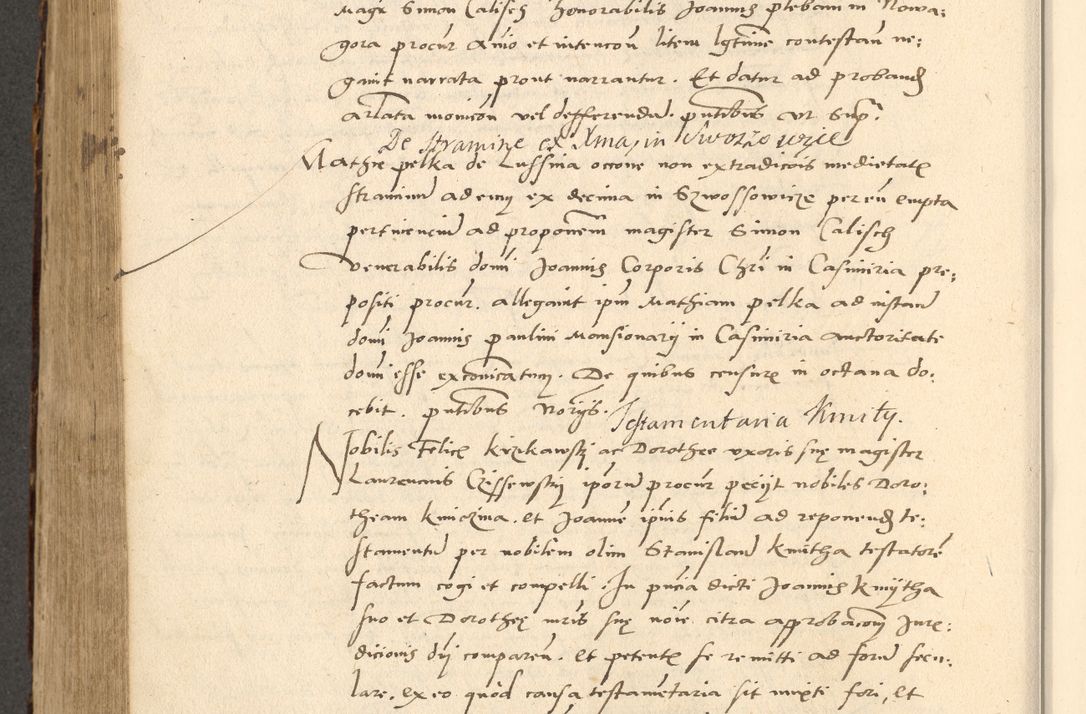 Magr Simon Calisch honorabilis Joannis plebani in Nowa:
gora procur a͞nio et intencon litem lgtime contestan ne:
gavit narrata prout narrantur. Et datur ad proband
arlata monicon vel defferendu. pntibus ut sup.
De stramine ex Xma, in Swozowize
Mathie pelka de Lussina occone non extradicois medietate
straminu ademy ex decima in Szwossowicze per eu empta
pertinenciu ad proponem magister Simon Calisch
venerabilis domi Joannis Corporis Chri in Casimiria pre:
positi procur. allegavit ipm Mathiam pelka ad instan
domi Joannis paulini Mansionarij in Casimiria auctoritate
domi esse exconicatum. De quibus censuris in octava do:
cebit. pntibus Norijs. Testamentaria Kmity.
Nobilis Felice krzikawski ac Dorothee uxoris sue magister
Laurenius Czissewski iporu procur peciit nobiles Doro:
theam kmiczina. et Joanne ipius filiu ad reponend te:
stamentu per nobilem olim Stanislau kmitha testatore
factum cogi et compelli. In pncia dicti Joannis kmytha
suo et Dorothee mris sue noie citra approbacom Jure:
dicionis dni comparen. et petente se remitti ad foru secu:
lare, ex eo quod causa testametaria sit mixti fori, et